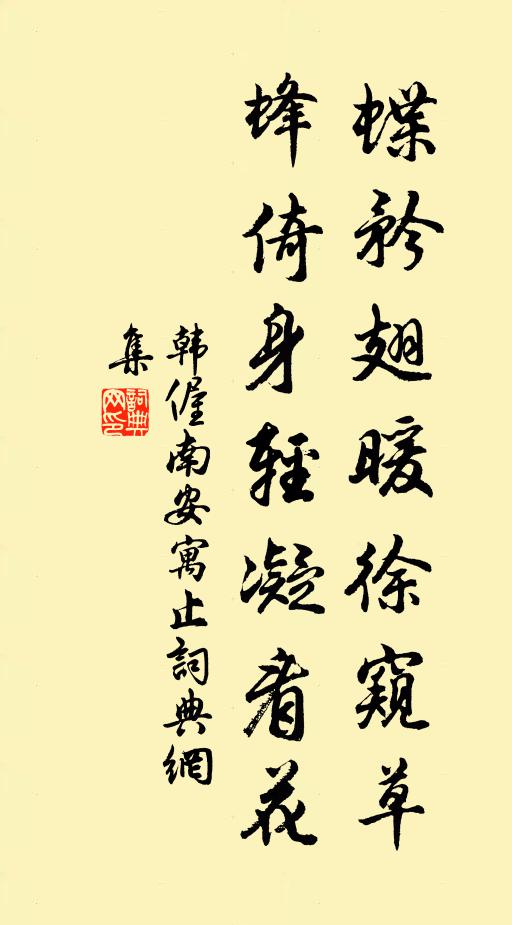 蝶矜翅暖徐窺草
蜂倚身輕凝看花
韩偓南安寓止詞典網
集
詞典
网印